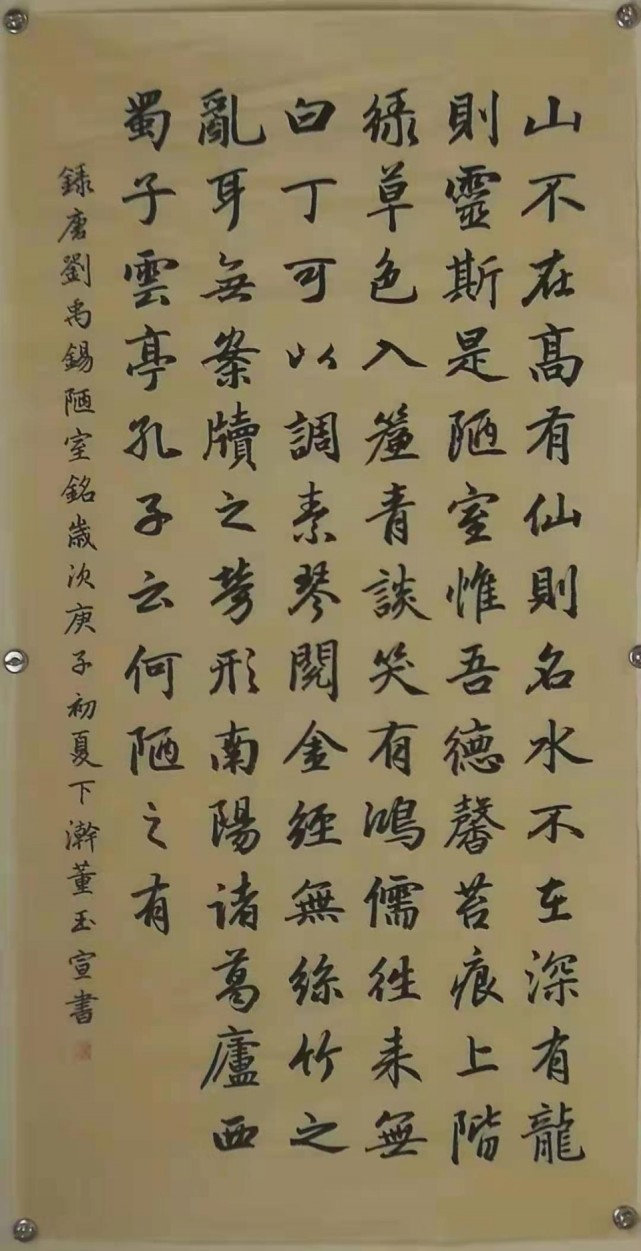 山不在高有仙則名水不在深有龍
則靈斯是陋室惟吾德馨苔痕上階
綠草色入簾青談笑有鴻儒往来無
白丁可以調素琴閱金經無絲竹之
亂耳無案牘之勞形南陽諸葛廬西
蜀子雲亭孔子云何陋之有
錄唐劉禹錫陋室銘歲次庚子初夏下澣董玉宣書